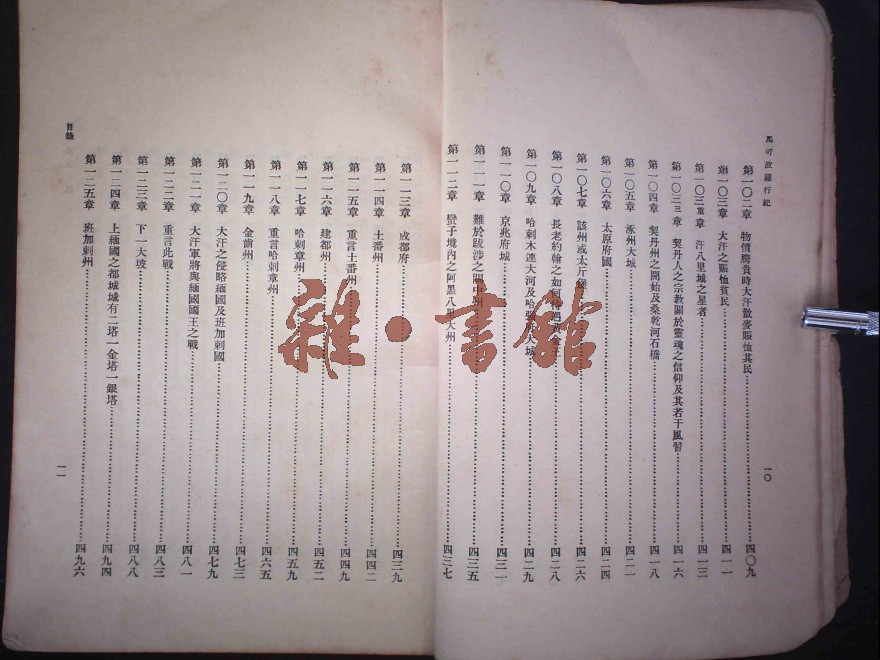 馬可波羅行紀
第一〇二章 物價騰貴時大汗散麥賑恤其民 四〇九
第一〇三章 大汗之賑恤貧民 四一一
第一〇三重章 汗八里城之星者 四一三
第一〇三三章 契丹人之宗教關於靈魂之信仰及其若干風習 四一六
第一〇四章 契丹州之開始及桑乾河石橋 四一八
第一〇五章 涿州大城 四二一
第一〇六章 太原府國 四二四
第一〇七章 該州或太斤堡 四二六
第一〇八章 長老約翰之如何
第一〇九章 哈剌木連大河及哈 大城 四二九
第一一〇章 京兆府城 四三一
第一一一章 難於跋涉之 州 四三五
第一一二章 蠻子境內之阿黑八里大州 四三七
一〇
第一一三章 成都府 四三九
第一一四章 土番州 四四二
第一一五章 重言土番州 四四九
第一一六章 建都州 四五二
第一一七章 哈剌章州 四五九
第一一八章 重言哈剌章州 四六五
第一一九章 金齒州 四七三
第一二〇章 大汗之侵略緬國及班加剌國 四七九
第一二一章 大汗軍將與緬國國王之戰 四八一
第一二二章 重言此戰 四八三
第一二三章 下一大坡 四八八
第一二四章 上緬國之都城城有二塔一金塔一銀塔 四九四
第一二五章 班加剌州 四九六
目錄
一一
雜·書館